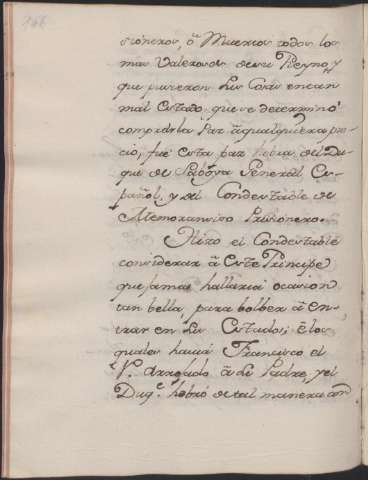 sioneros, ô Muertos todos los
mas Valerosos de su Reyno, y
que pusieron sus Cosas en tan
mal Estado que se determinó
comprar la Paz â qualquiera pre
cio, fue esta paz hobra del Du
que de Saboya General Es-
pañol, y del Condestable de
Memoransiso Prisionero.
Hizo el Condestable
considerar â Este Principe
que jamas hallaria ocasion
tan bella, para bolber â en-
trar en sus Estados, ê los
quales havia Francisco el
1º. Arrojado â su Padre, y el
Duqᵉ. hobró de tal manera con